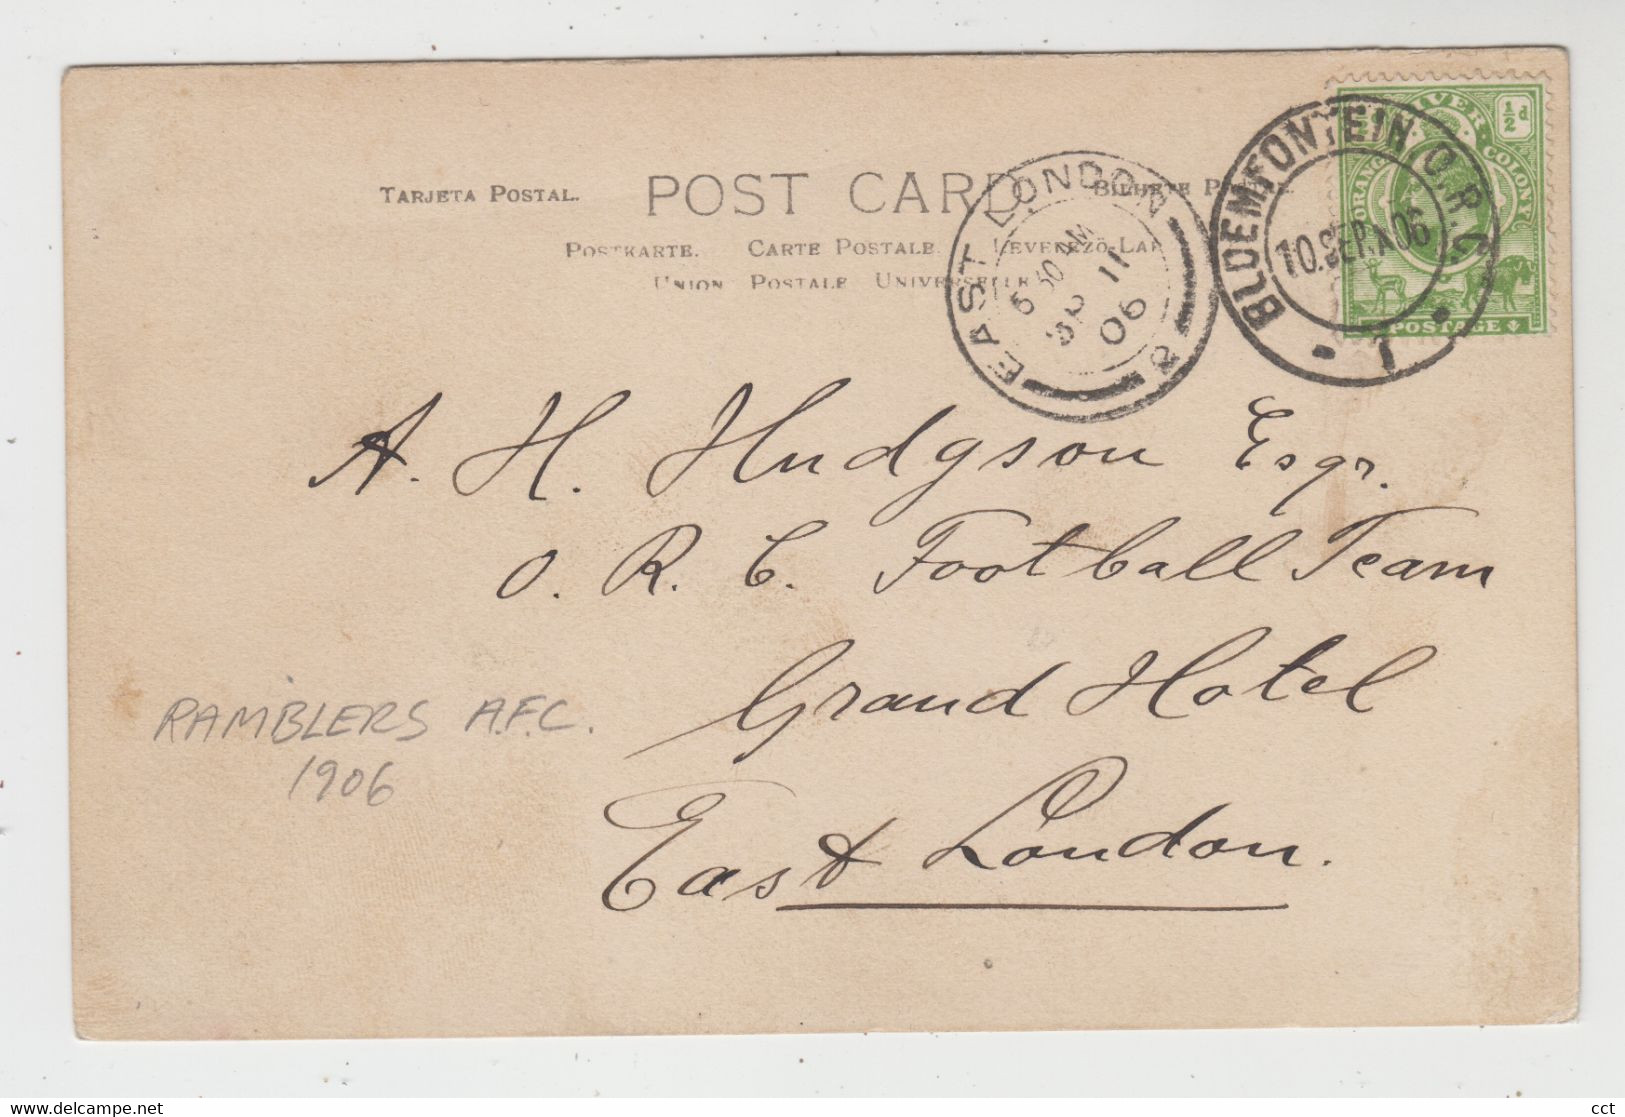 TARJETA POSTAL. POST CARD. BILHETE
POSTKARTE. CARTE POSTALE. LEVELEZÖ-LAP
UNION POSTALE UNIVERSELLE
EAST LONDON 2
AM
SP 11
06
BLOEMFONTEIN O.R.C.
10.SEP.A06
1
ORANGE RIVER COLONY
½d
POSTAGE
A. H. Hudgson Esqr.
O. R. C. Football Team
Grand Hotel
East London.
RAMBLERS A.F.C.
1906
cct